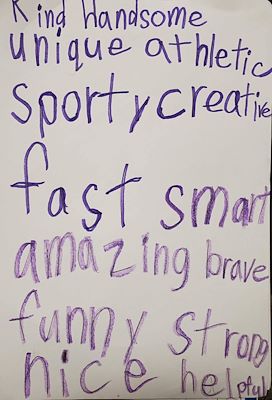 Kind Handsome
unique athletic
sporty creative
fast smart
amazing brave
funny strong
nice helpful